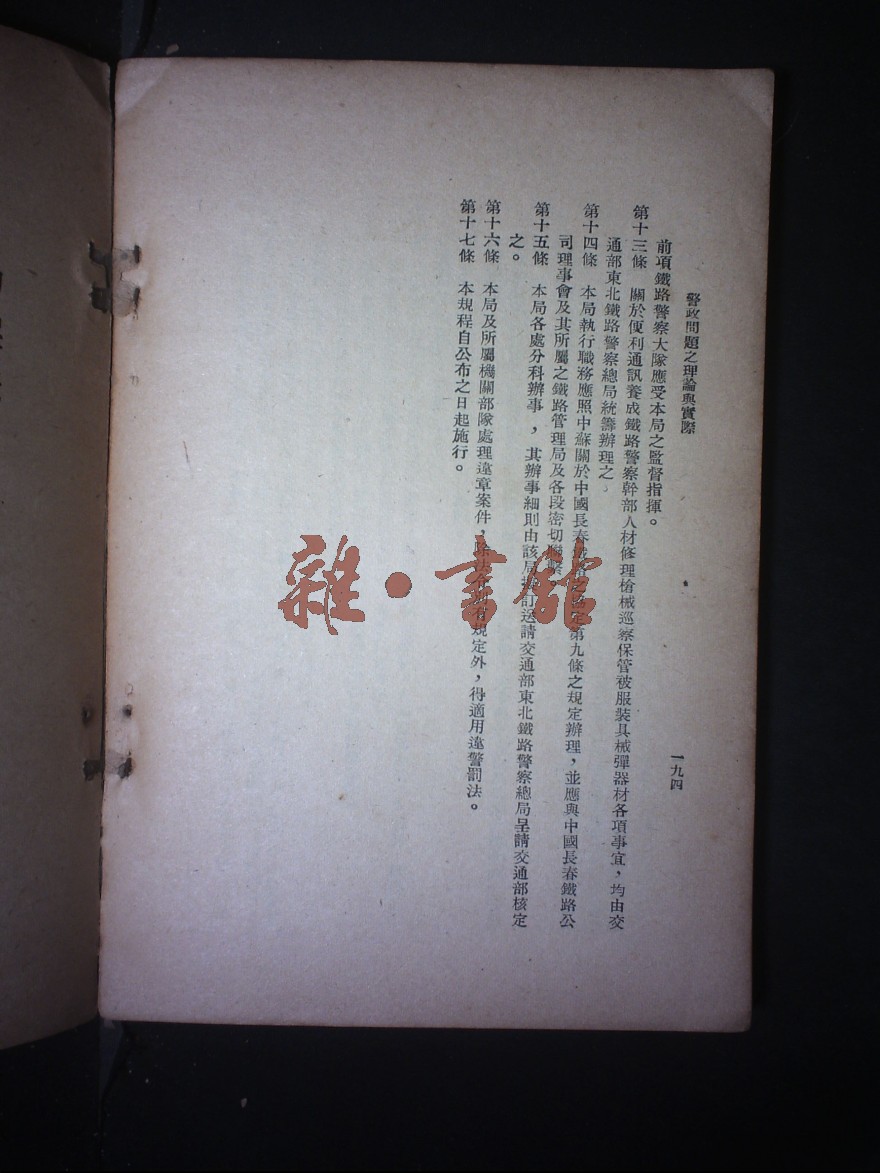 警政問題之理論與實際
一九四
前項鐵路警察大隊應受本局之監督指揮。
第十三條 關於便利通訊養成鐵路警察幹部人材修理槍械巡察保管被服裝具械彈器材各項事宜，均由交
通部東北鐵路警察總局統籌辦理之。
第十四條 本局執行職務應照中蘇關於中國長春鐵路之協定第九條之規定辦理，並應與中國長春鐵路公
司理事會及其所屬之鐵路管理局及各段密切聯繫
第十五條 本局各處分科辦事，其辦事細則由該局 訂送請交通部東北鐵路警察總局呈請交通部核定
之。
第十六條 本局及所屬機關部隊處理違章案件，除法 有規定外，得適用違警罰法。
第十七條 本規程自公布之日起施行。
雜·書館